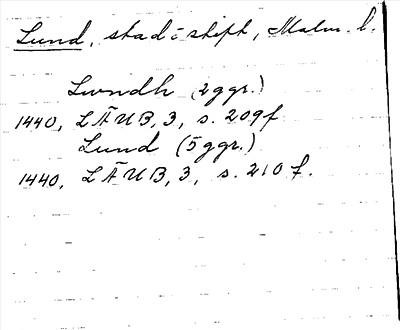 Lund, stad o. stift, Malm. l.
Lwndh (2ggr.)
1440, LÄUB, 3, s. 209f
Lund (5ggr.)
1440, LÄUB, 3, s. 210f.